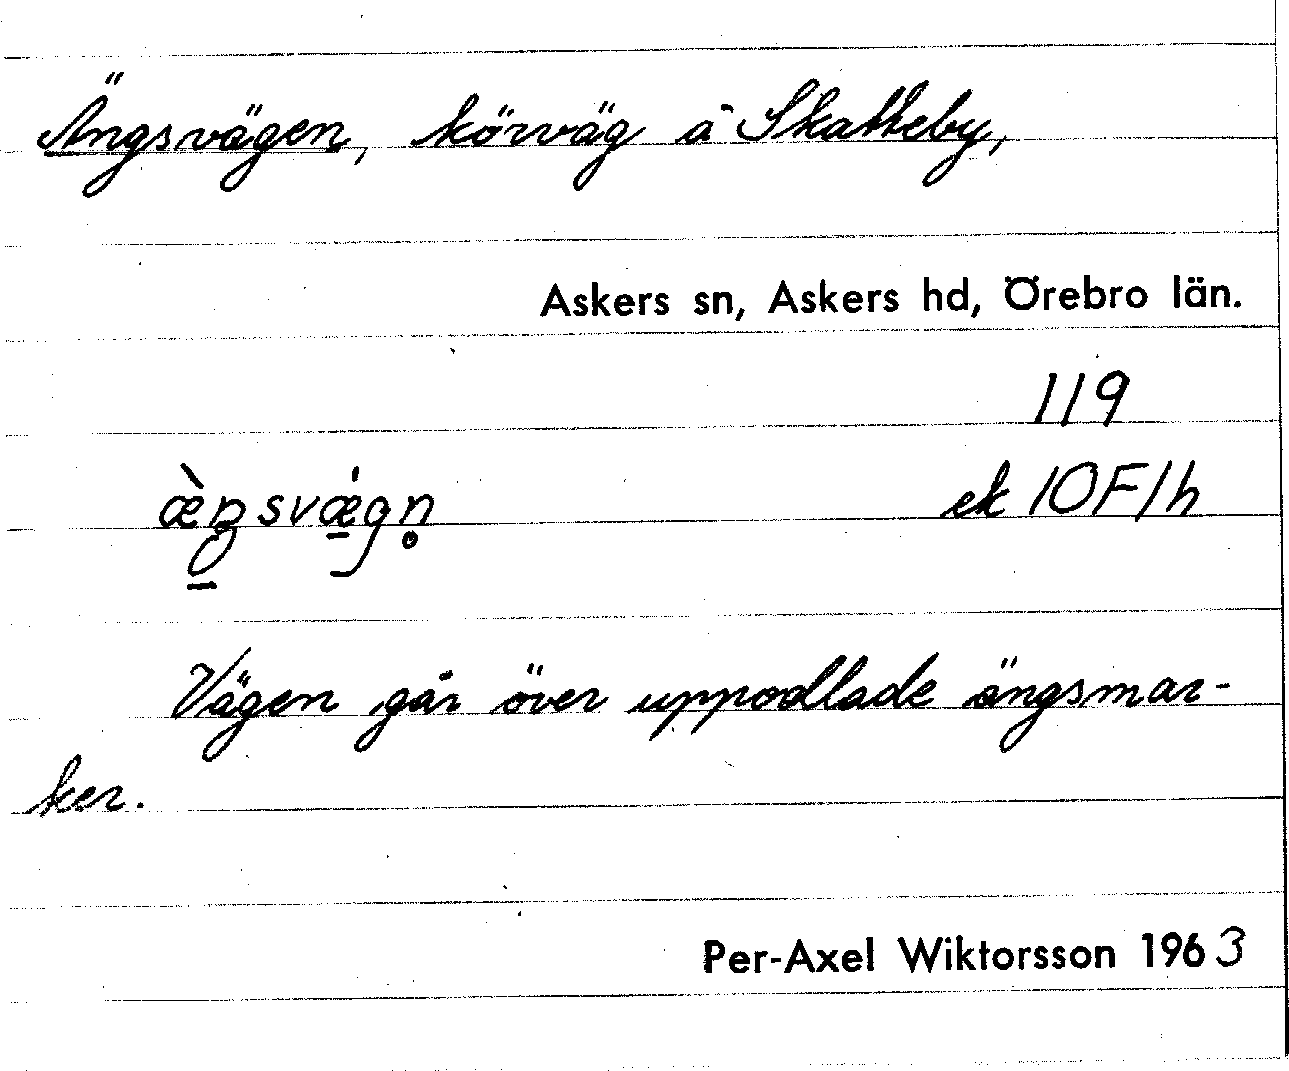 Ängsvägen, körväg å Skatteby,
Askers sn, Askers hd, Örebro län.
119
æ̀ŋsvǽgn̥ ek 10F1h
Vägen går över uppodlade ängsmar-
ker.
Per-Axel Wiktorsson 1963